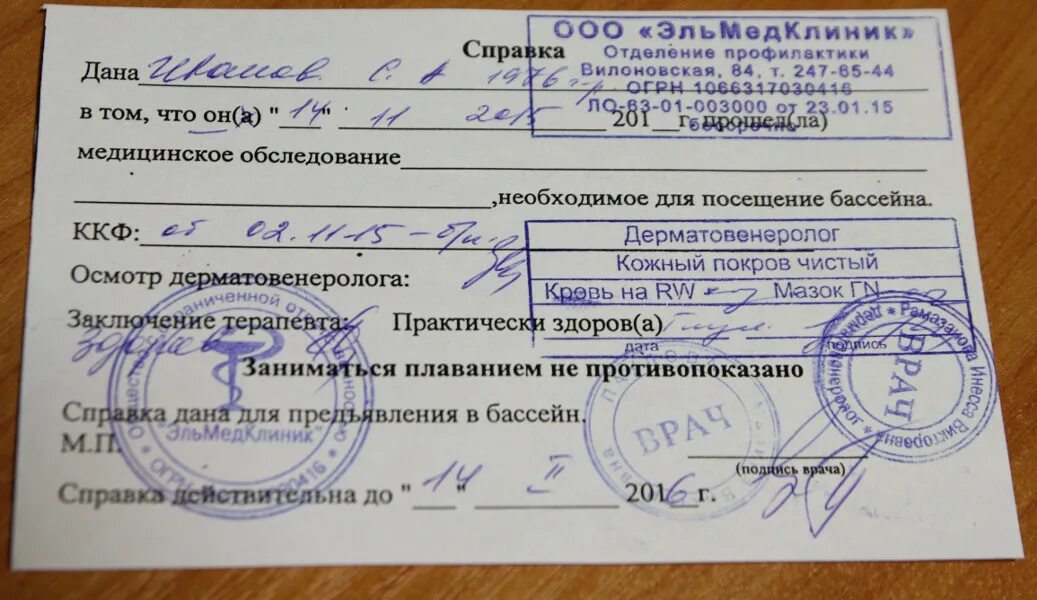 ООО «ЭльМедКлиник»
Отделение профилактики
Вилоновская, 84, т. 247-65-44
ОГРН 1066317030416
ЛО-63-01-003000 от 23.01.15
бессрочно
Справка
Дана Иванов С. А 1976 г.р.
в том, что он(а) "14" 11 2015 201__г. прошел(ла)
медицинское обследование
,необходимое для посещение бассейна.
ККФ: от 02.11.15 – б/п
Дерматовенеролог
Кожный покров чистый
Кровь на RW Мазок ГN
дата подпись
Осмотр дерматовенеролога:
Заключение терапевта: Практически здоров(а)
здоров
Заниматься плаванием не противопоказано
Справка дана для предъявления в бассейн.
М.П.
(подпись врача)
Справка действительна до "14" II 2016 г.
"ЭльМедКлиник"
ВРАЧ
ВРАЧ
Рамазанова Инесса Викторовна